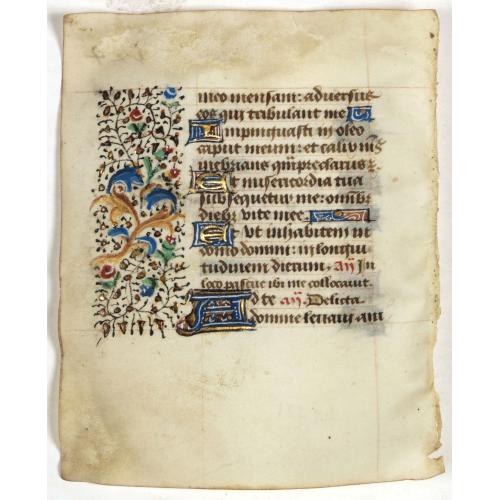 meo mensam: adversus
eos qui tribulant me
Impinguasti in oleo
caput meum: et calix meus
inebrians quam preclarus
Et misericordia tua
subsequetur me: omnibus
diebus vite mee
Et ut inhabitem in
domo domini: in longitu
tudinem dierum. an In
loco pascue ibi me collocavit.
Ad te an. Delicta
domine levavi ani